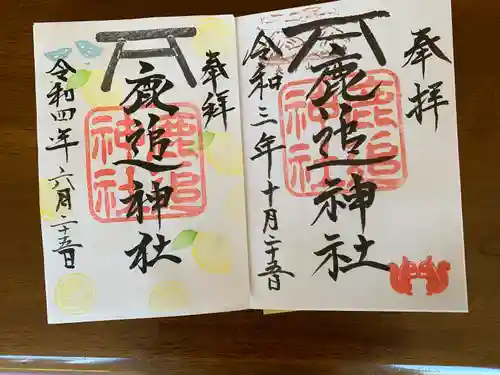 奉拝
鹿追神社
鹿追
神社
令和三年十月二十五日
奉拝
鹿追神社
鹿追
神社
令和四年六月二十五日